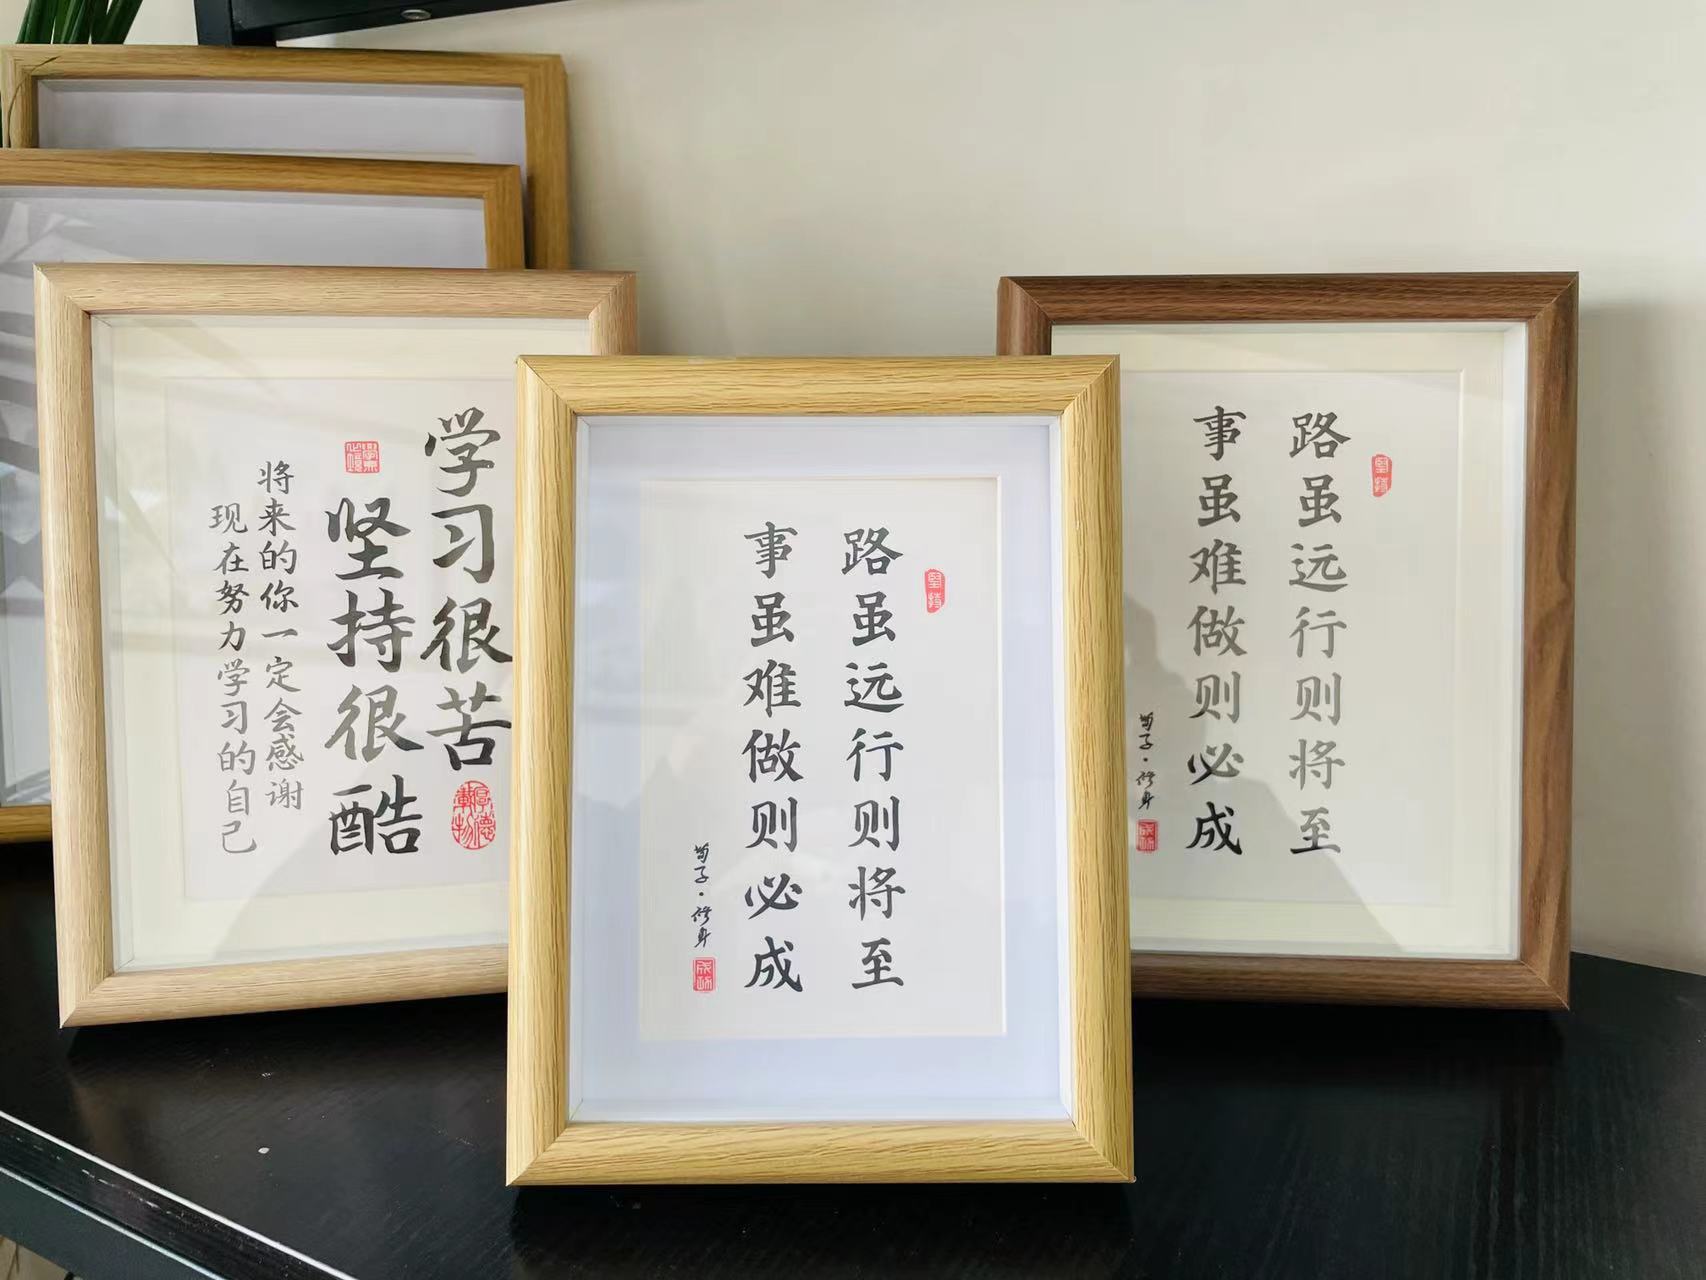 学习很苦
坚持很酷
将来的你一定会感谢
现在努力学习的自己
厚德载物
坚持
路虽远行则将至
事虽难做则必成
荀子·修身
成功
坚持
路虽远行则将至
事虽难做则必成
荀子·修身
成功